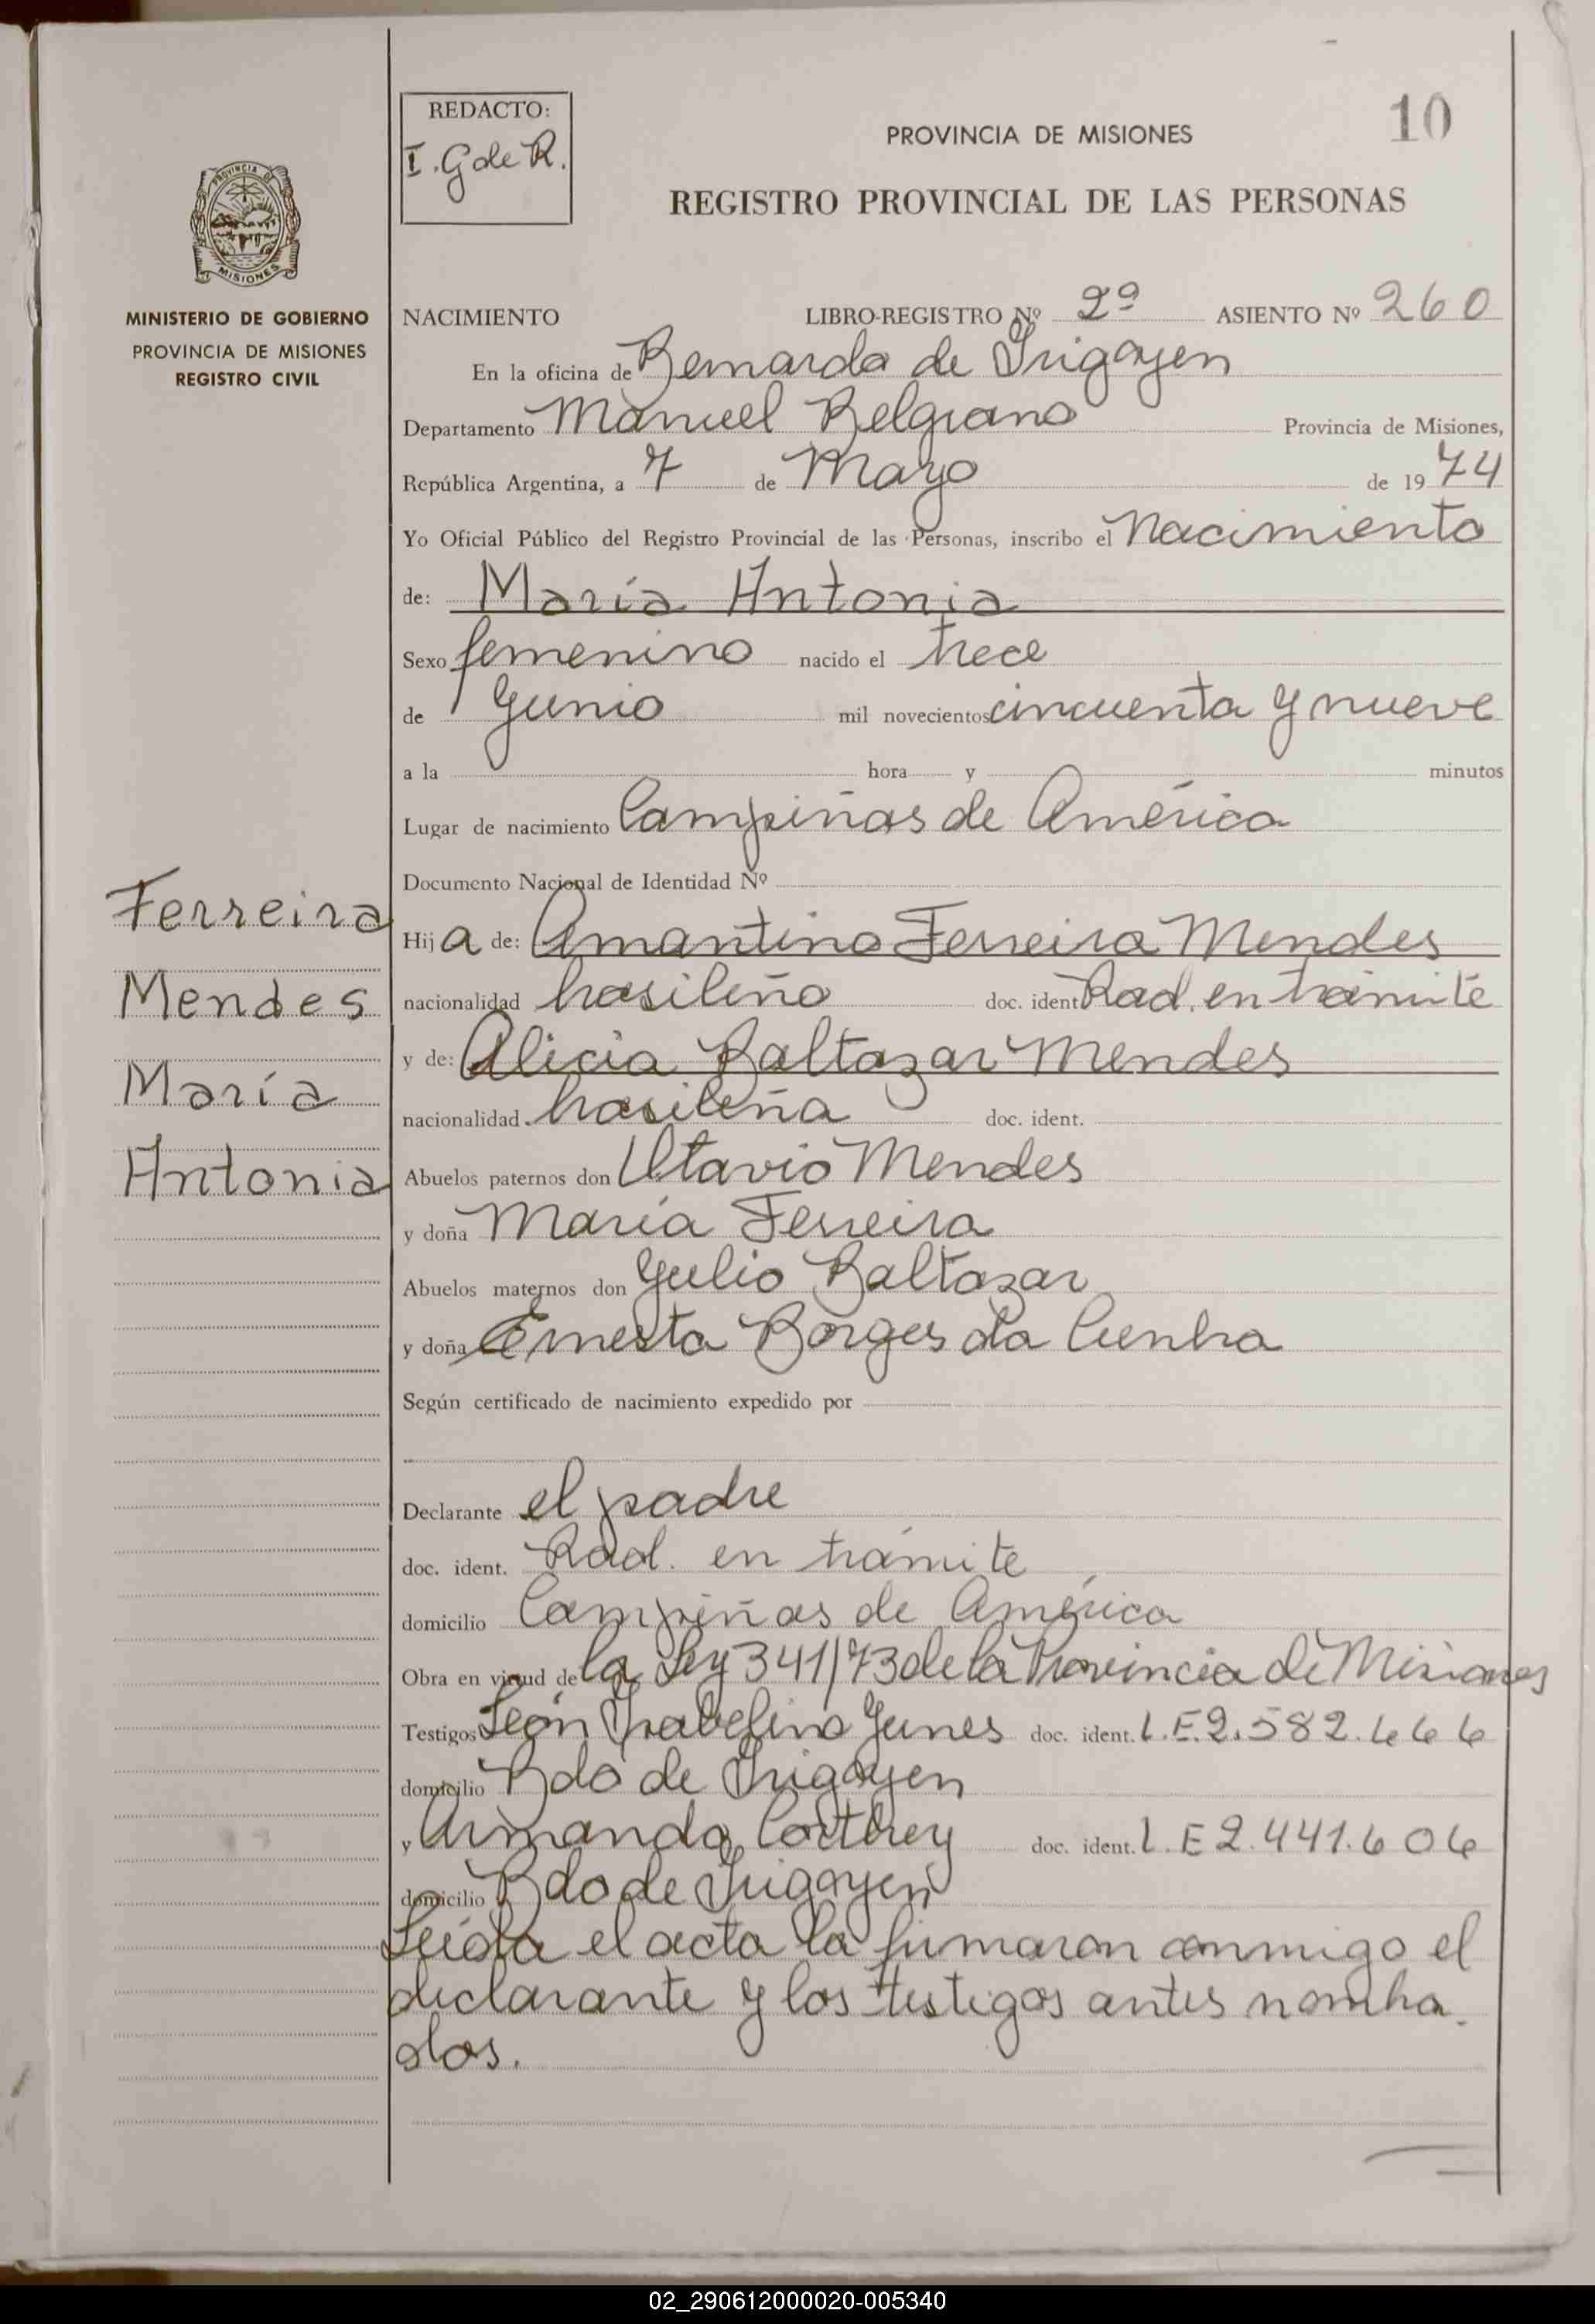 REDACTO:
I. G de R.
10
PROVINCIA DE MISIONES
REGISTRO PROVINCIAL DE LAS PERSONAS
PROVINCIA DE
MISIONES
MINISTERIO DE GOBIERNO
PROVINCIA DE MISIONES
REGISTRO CIVIL
NACIMIENTO LIBRO-REGISTRO Nº 2º ASIENTO Nº 260
En la oficina de Bernardo de Irigoyen
Departamento Manuel Belgrano Provincia de Misiones,
República Argentina, a 7 de Mayo de 1974
Yo Oficial Público del Registro Provincial de las Personas, inscribo el Nacimiento
de: María Antonia
Sexo femenino nacido el trece
de Junio mil novecientos cincuenta y nueve
a la hora y minutos
Lugar de nacimiento Campiñas de América
Documento Nacional de Identidad Nº
Ferreira
Mendes
María
Antonia
Hija de: Amantino Ferreira Mendes
nacionalidad brasileño doc. ident. Rad. en trámite
y de: Alicia Baltazar Mendes
nacionalidad brasileña doc. ident.
Abuelos paternos don Otavio Mendes
y doña María Ferreira
Abuelos maternos don Julio Baltazar
y doña Ernesta Borges da Cunha
Según certificado de nacimiento expedido por
Declarante el padre
doc. ident. Rad. en trámite
domicilio Campiñas de América
Obra en virtud de la Ley 341/73 de la Provincia de Misiones
Testigos León Junes doc. ident. L.E. 2.582.466
domicilio Bdo de Irigoyen
y Armando doc. ident. L.E 2.441.606
domicilio Bdo de Irigoyen
Leída el acta la firmaron conmigo el
declarante y los testigos antes nombra
dos.
02_290612000020-005340